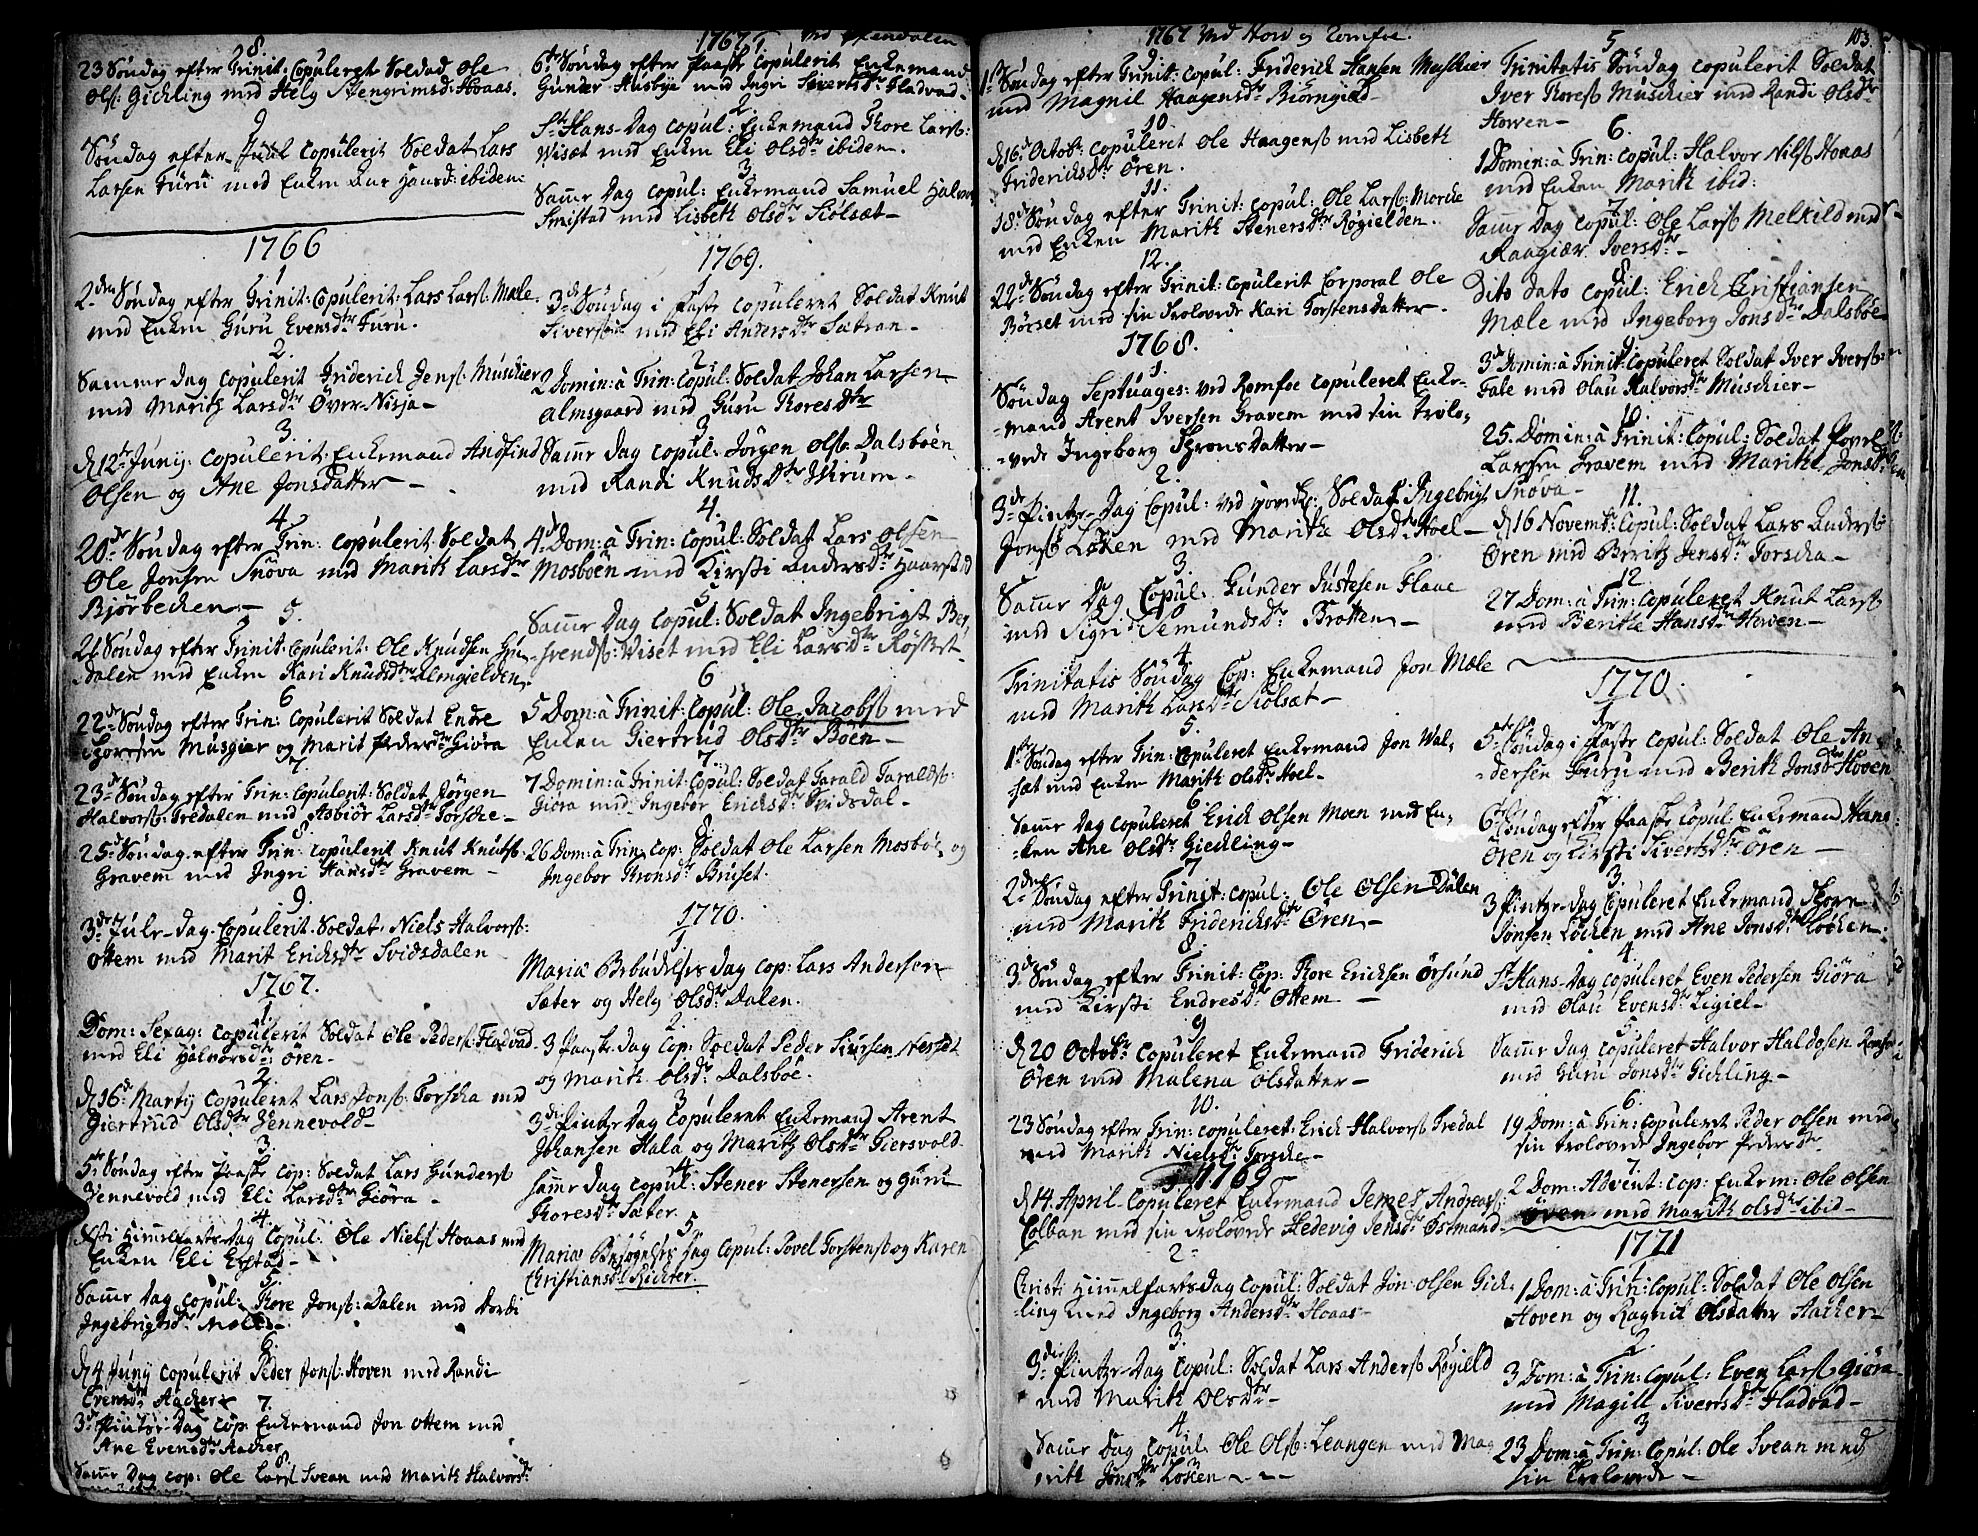 8.
23 Søndag efter Trinit: Copuleret Soldat Ole
Ols: Gickling med Helg Stengrimsd: Hoaas.
9
Søndag efter Juul Copulerit Soldat Lars
Larsen Furu med Enken Ane Hansd: ibiden:
1766
1
2den Søndag efter Trinit: Copulerit: Lars Lars: Mæle
med Enken Guru Evensdtr Furu.
2.
Sammr Dag Copulerit Friderich Jens: Muschier
med Marith Larsdtr Över-Nisja-
3.
d 12te Junij: Copulerit: Enkemand Andfind
Olsen og Ane Jonsdatter-
4.
20de Søndag efter Trin: Copulerit Soldat
Ole Jonsen Snöva med Marith Larsdtr
Bjørbechen-
5.
21 Søndag efter Trinit: Copulerit: Ole Knudsen
dalen med Enken Kari Knudsdtr Almgielden
6
22de Søndag efter Trin: Copulerit Soldat Endre
Musgier og Marit Pedersdtr Giöra
7.
23de Søndag efter Trin: Copulerit: Soldat Jörgen
Halvors: Fredalen med Asbiör Larsdtr Torsche-
8.
25de Søndag efter Trin: Copulerit Knut Knuts:
Gravem med Ingri Hansdtr Gravem-
9.
3de Jule-Dag Copulerit: Soldat: Niels Halvors:
Ottem med Marit Ericksdtr Svidsdalen
1767.
1.
Dom: Sexag: Copulerit Soldat Ole Peders: Fladvad
med Eli Halvorsdtr Ören-
2.
d 16de Martij Copuleret Lars Jons: Torscha med
Giertrud Olsdtr Jennevold-
3
5te Søndag efter Paaske Cop: Soldat Lars Gunders:
Jennevold med Eli Larsdtr Giöra-
4.
Xsti Himmelfarts-Dag Copul: Ole Niels: Hoaas med
Enken Eli Erstad-
5.
Sammr Dag Copul: Tore Jons: Dalen med Dordi
Ingebrigtsdtr Mæle-
6.
d 4 Junij Copulerit Peder Jons: Hoven med Randi
Evensdtr Aacker-
7.
3de Pintse-Dag Cop: Enkemand Jon Ottem med
Ane Evensdtr Aacker
8.
Sammr Dag Cop: Ole Lars: Svean med Marith Halvorsdtr
1767. Ved Öxendalen
1.
6te Søndag efter Paaske Copulerit Enkemand
Gunder Husbye med Ingri Sivertsdtr Fladvad-
2
St Hans-Dag Copul: Enkemand Tore Lars:
Wiset med Enken Eli Olsdtr ibiden.
3
Sammr Dag Copul: Enkemand Samuel Halvor
Smistad med Lisbeth Olsdtr Siölsæt-
1769.
1
3de Søndag i Faste Copuleret Soldat Knut
Siversen med Eli Andersdtr Sætran-
2
2 Domin: à Trin: Copul: Soldat Johan Larsen
Almsgaard med Guru Toresdtr
3
Sammr Dag Copul: Jörgen Ols: Dalsböen
med Randi Knudsdtr Wirum-
4.
4de Dom: à Trin: Copul: Soldat Lars Olsen
Mosböen med Kirsti Andersdtr Haarstad
5
Sammr Dag Copul: Soldat Ingebrigt Ber,
Wiset med Eli Larsdtr Röshset-
6
5 Dom: à Trinit: Copul: Ole Jacobs: med
Enken Giertrud Olsdtr Böen-
7.
7 Domin: à Trinit: Copul: Soldat Tarald Taralds:
Giöra med Ingebor Ericksdtr Svidsdal-
8
26 Dom: à Trin: Cop: Soldat Ole Larsen Mosbö, og
Ingebor Tronsdtr Bruset.
1770.
1
Mariæ Bebudelses Dag Cop: Lars Andersen
Sæter og Helg Olsdtr Dalen.
2.
3 Paaske Dag Cop: Soldat Peder Siursen Nesset
og Marith Olsdtr Dalsböe.
3
3de Pintse Dag Copuleret Enkemand Arent
Johansen Hala og Marith Olsdtr Giersvold
4
Sammr Dag Copul: Stener Stenersen og Guru
Toresdtr Sæter.
5
Mariæ Besögelses Dag Copul: Povel Torstens: og Karen
Christiansdtr Richter.
1767 Ved Hov og Romfoe.
103
9
1ste Søndag efter Trinit: Copul: Friderich Hansen Muschier
med Magnil Haagensdtr Biörngield-
10
d 16de Octob: Copuleret Ole Haagens: med Lisbeth
Friderichsdtr Ören.
11.
18de Søndag efter Trinit: Copul: Ole Lars: Morche
med Enken Marith Stenersdtr Røgielden.
12.
22de Søndag efter Trinit: Copulerit Corporal Ole
Börset med sin Trolovede Kari Torstensdatter.
1768.
1.
Søndag Septuages: ved Romfoe Copuleret Enke-
mand Arent Iversen Gravem med sin Trolo,
vede Ingeborg Tronsdatter-
2.
3de Pintse-Dag Copul: ved Soldat Ingebrigt
Jons: Løken med Marith Olsdtr Hoel-
3.
Sammr Dag Copul: Gunder Justesen Flaae
med Sigri Semundsdtr Bratten-
4
Trinitatis Søndag Cop: Enkemand Jon Mæle
med Marith Larsdtr Siölsæt-
5.
1ste Søndag efter Trin: Copuleret Enkemand Jon Wal,
set med Enken Marith Olsdtr Hoel-
6
Sammr Dag Copuleret Erich Olsen Moen med En,
ken Ane Olsdtr Giedling-
7
2den Søndag efter Trinit: Copul: Ole Olsen Dalen
med Marith Friderichsdtr Ören-
8.
3de Søndag efter Trinit: Cop: Tore Ericksen Örsund
med Kirsti Endresdtr Ottem-
9
d 20 Octobr Copuleret Enkemand Friderich
Ören med Malena Olsdatter-
10.
23 Søndag efter Trin: Copuleret: Erich Halvors: Fredal
med Marith Nielsdtr Torsche-
1769
d 14 April Copuleret Enkemand Jemes Andreas:
Colban med sin Trolovede Hedevig Jensdtr Østmand-
2
Christi Himmelfarts Dag Copul: Soldat Jon Olsen Gick,
ling med Ingeborg Andersdtr Hoaas-
3.
3de Pintse-Dag Copul: Soldat Lars Anders: Røgield
med Marith Olsdtr-
4.
Sammr Dag Copul: Ole Ols: Leangen med Mag
Jonsdtr Löken-
5
Trinitatis Søndag Copulerit Soldat
Iver Tores: Muschier med Randi Olsdtr
Hoven-
6.
1 Domin: à Trin: Copul: Halvor Nils: Hoaas
med Enken Marith ibid:
7
Sammr Dag Copul: Ole Lars: Melkild med
Raagiær Iversdtr-
8
Dito Dato Copul: Erich Christiansen
Mæle med Ingeborg Jonsdtr Dalsböe
9
3de Domin: à Trinit: Copuleret Soldat Iver Ivers:
Fale med Olau Halvorsdtr Muschier-
10.
25. Domin: à Trinit: Copul: Soldat Povel
Larsen Gravem med Marithe Jonsdtr
Snöva-
11.
d 16 Novembr: Copul: Soldat Lars Anders:
Ören med Berith Jensdtr Torscha-
12
27 Dom: à Trin: Copuleret Knut Lars:
med Berithe Hansdtr Hoven-
1770.
1
5te Söndag i Faste Copul: Soldat Ole An,
dersen Furu med Berith Jonsdtr Hoven
2
6te Søndag efter Paaske Copul: Enkemand Hans
Ören og Kirsti Sivertsdtr Ören-
3.
3 Pintse-Dag Copuleret Enkemand Tore
Jonsen Löcken med Ane Jonsdtr Löcken.
4.
St Hans-Dag Copuleret Even Pedersen Giöra
med Olau Evensdtr Ligiel-
5.
Sammr Dag Copuleret Halvor Haldosen
med Guru Jonsdtr Gickling-
6.
19 Dom: à Trin: Copuleret Peder Olsen med
sin Trolovede Ingebor Pedersdtr
7.
2 Dom: Advent: Cop: Enkem: Ole Olsen
Oven med Marith Olsdtr ibid-
1771
1
1 Dom: à Trin: Copul: Soldat Ole Olsen
Hoven og Ragnil Olsdatter Aacker-
2
3 Dom: à Trin: Copul: Even Lars: Giöra
med Magill Sivertsdtr Fladvad-
3
23 Dom: à Trin: Copul: Ole Svean med
sin Trolovede-